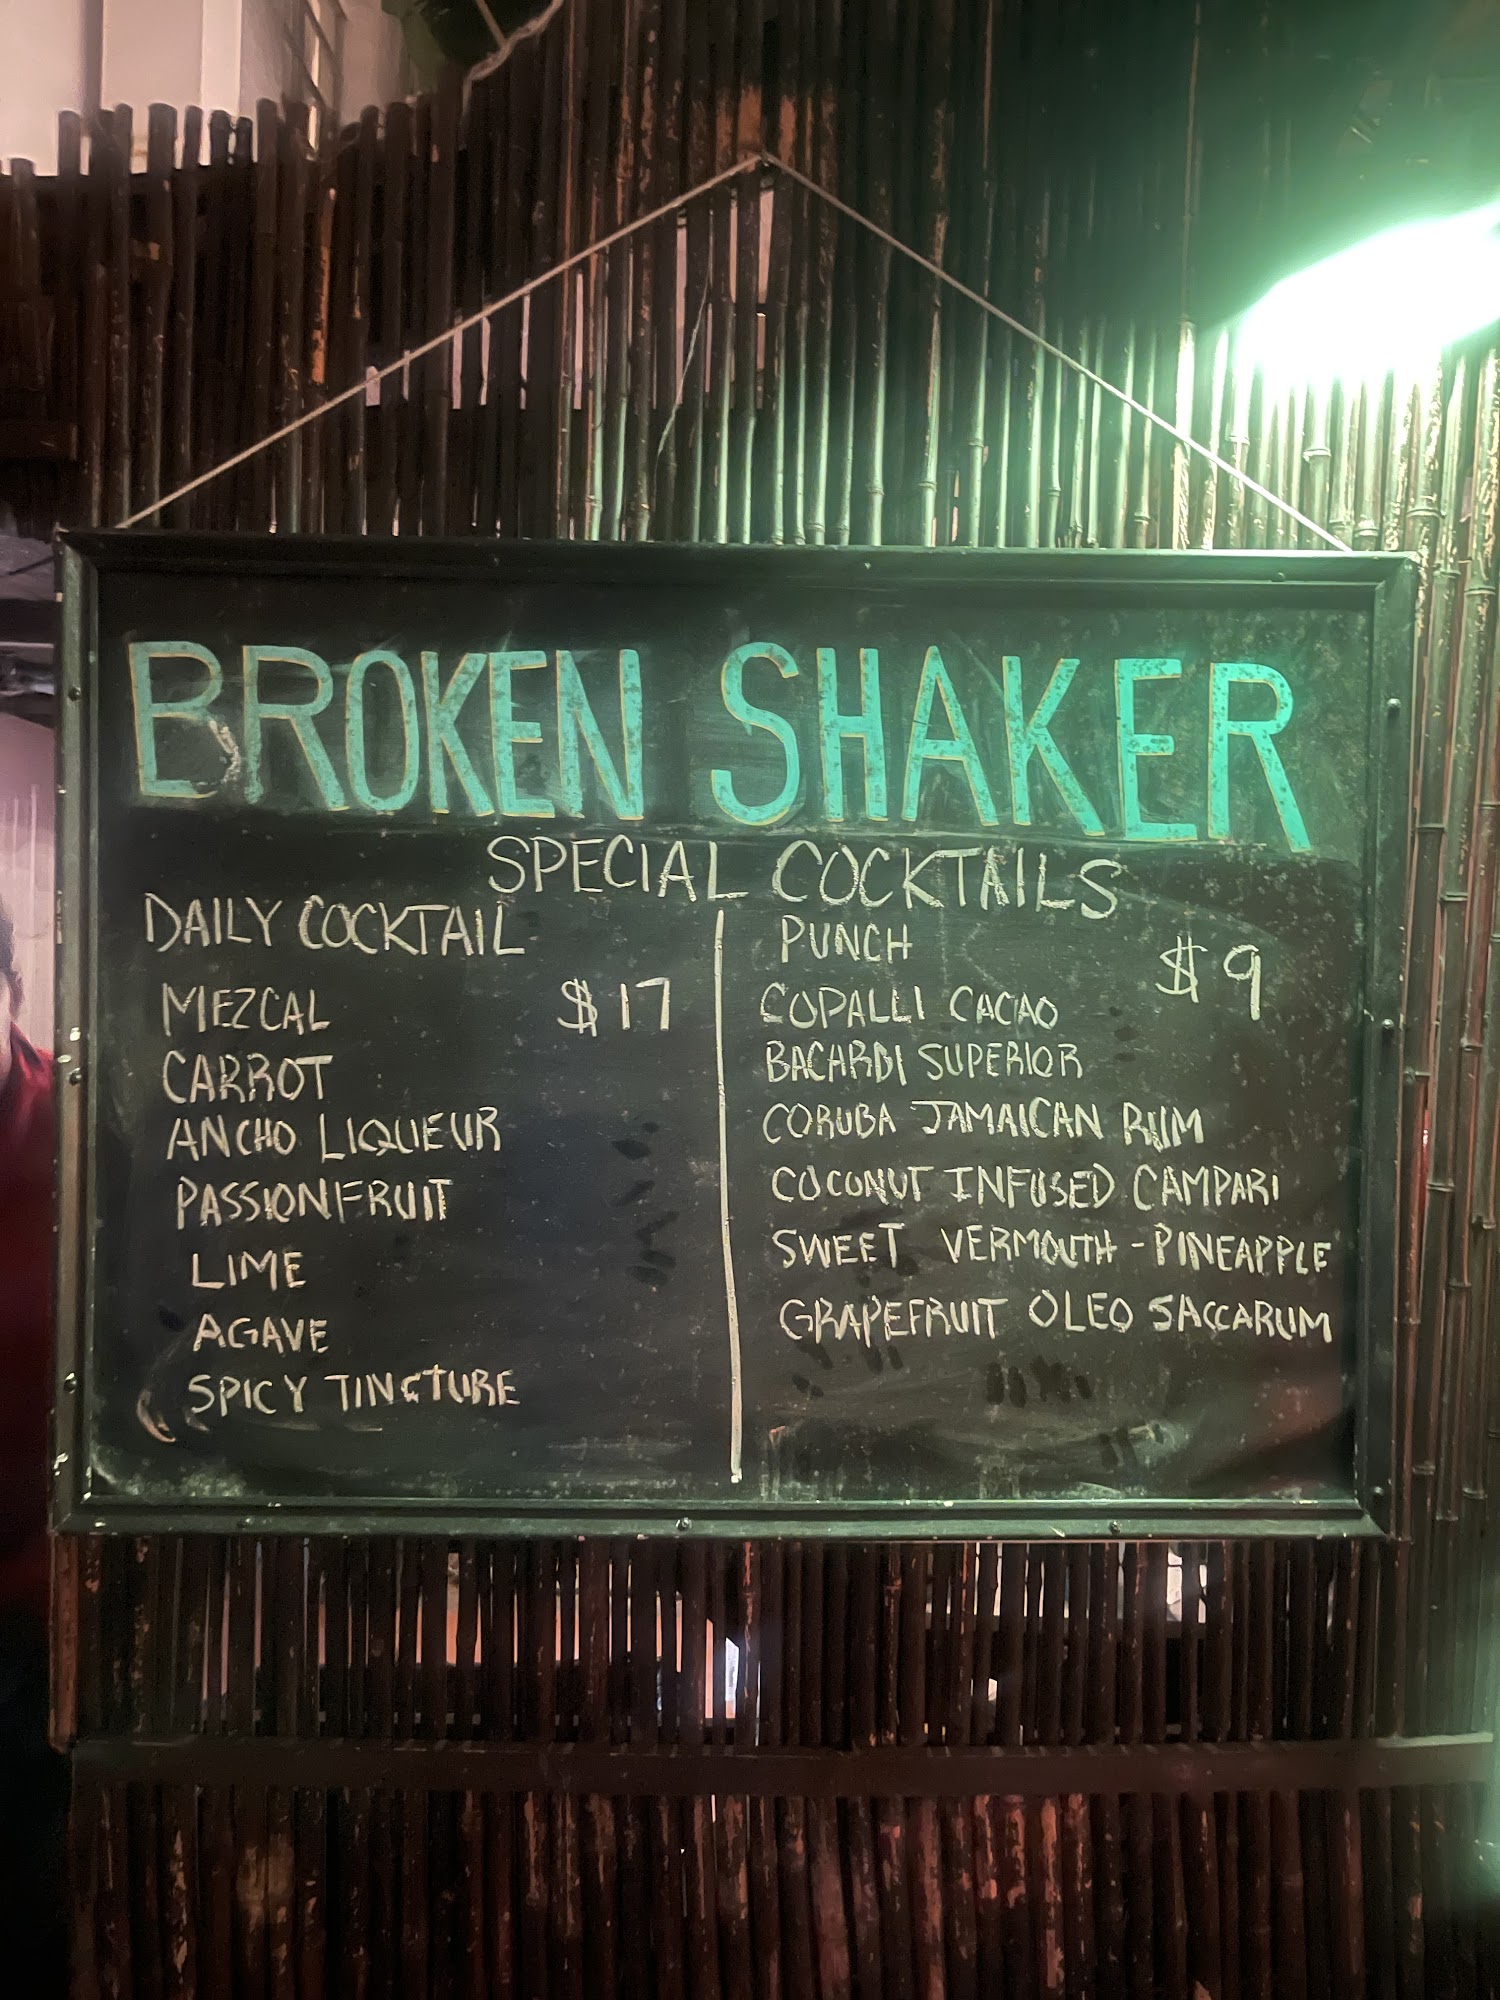 BROKEN SHAKER
SPECIAL COCKTAILS
DAILY COCKTAIL
MEZCAL $17
CARROT
ANCHO LIQUEUR
PASSIONFRUIT
LIME
AGAVE
SPICY TINCTURE
PUNCH
$9
COPALLI CACAO
BACARDI SUPERIOR
CORUBA JAMAICAN RUM
COCONUT INFUSED CAMPARI
SWEET VERMOUTH - PINEAPPLE
GRAPEFRUIT OLEO SACCARUM